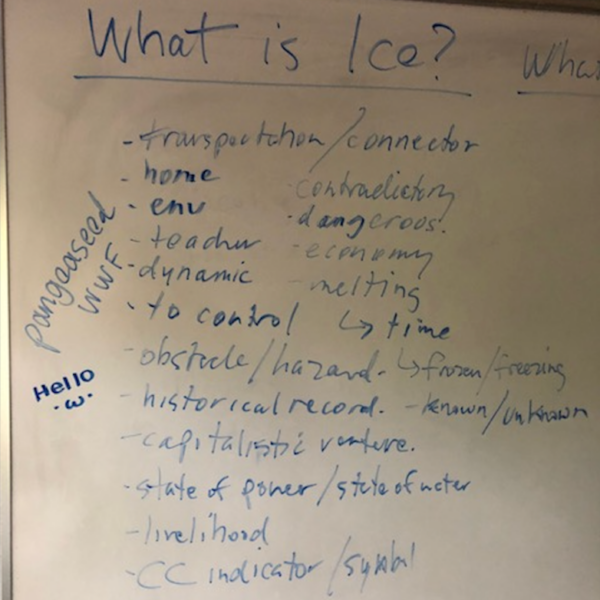 What is Ice?
What
- transportation/connector
- home
- env
- teacher
- dynamic
- to control
contradictory
dangerous.
- economy
- melting
↳ time
↳ frozen/freezing
- known/unknown
- obstacle/hazard.
- historical record.
- capitalistic venture.
- state of power/state of water
- livelihood
- CC indicator/symbol
Pangaaseed
WWF
Hello
·ω·